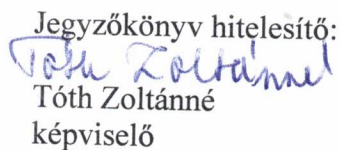 Jegyzőkönyv hitelesítő:
Tóth Zoltánné
Tóth Zoltánné
képviselő